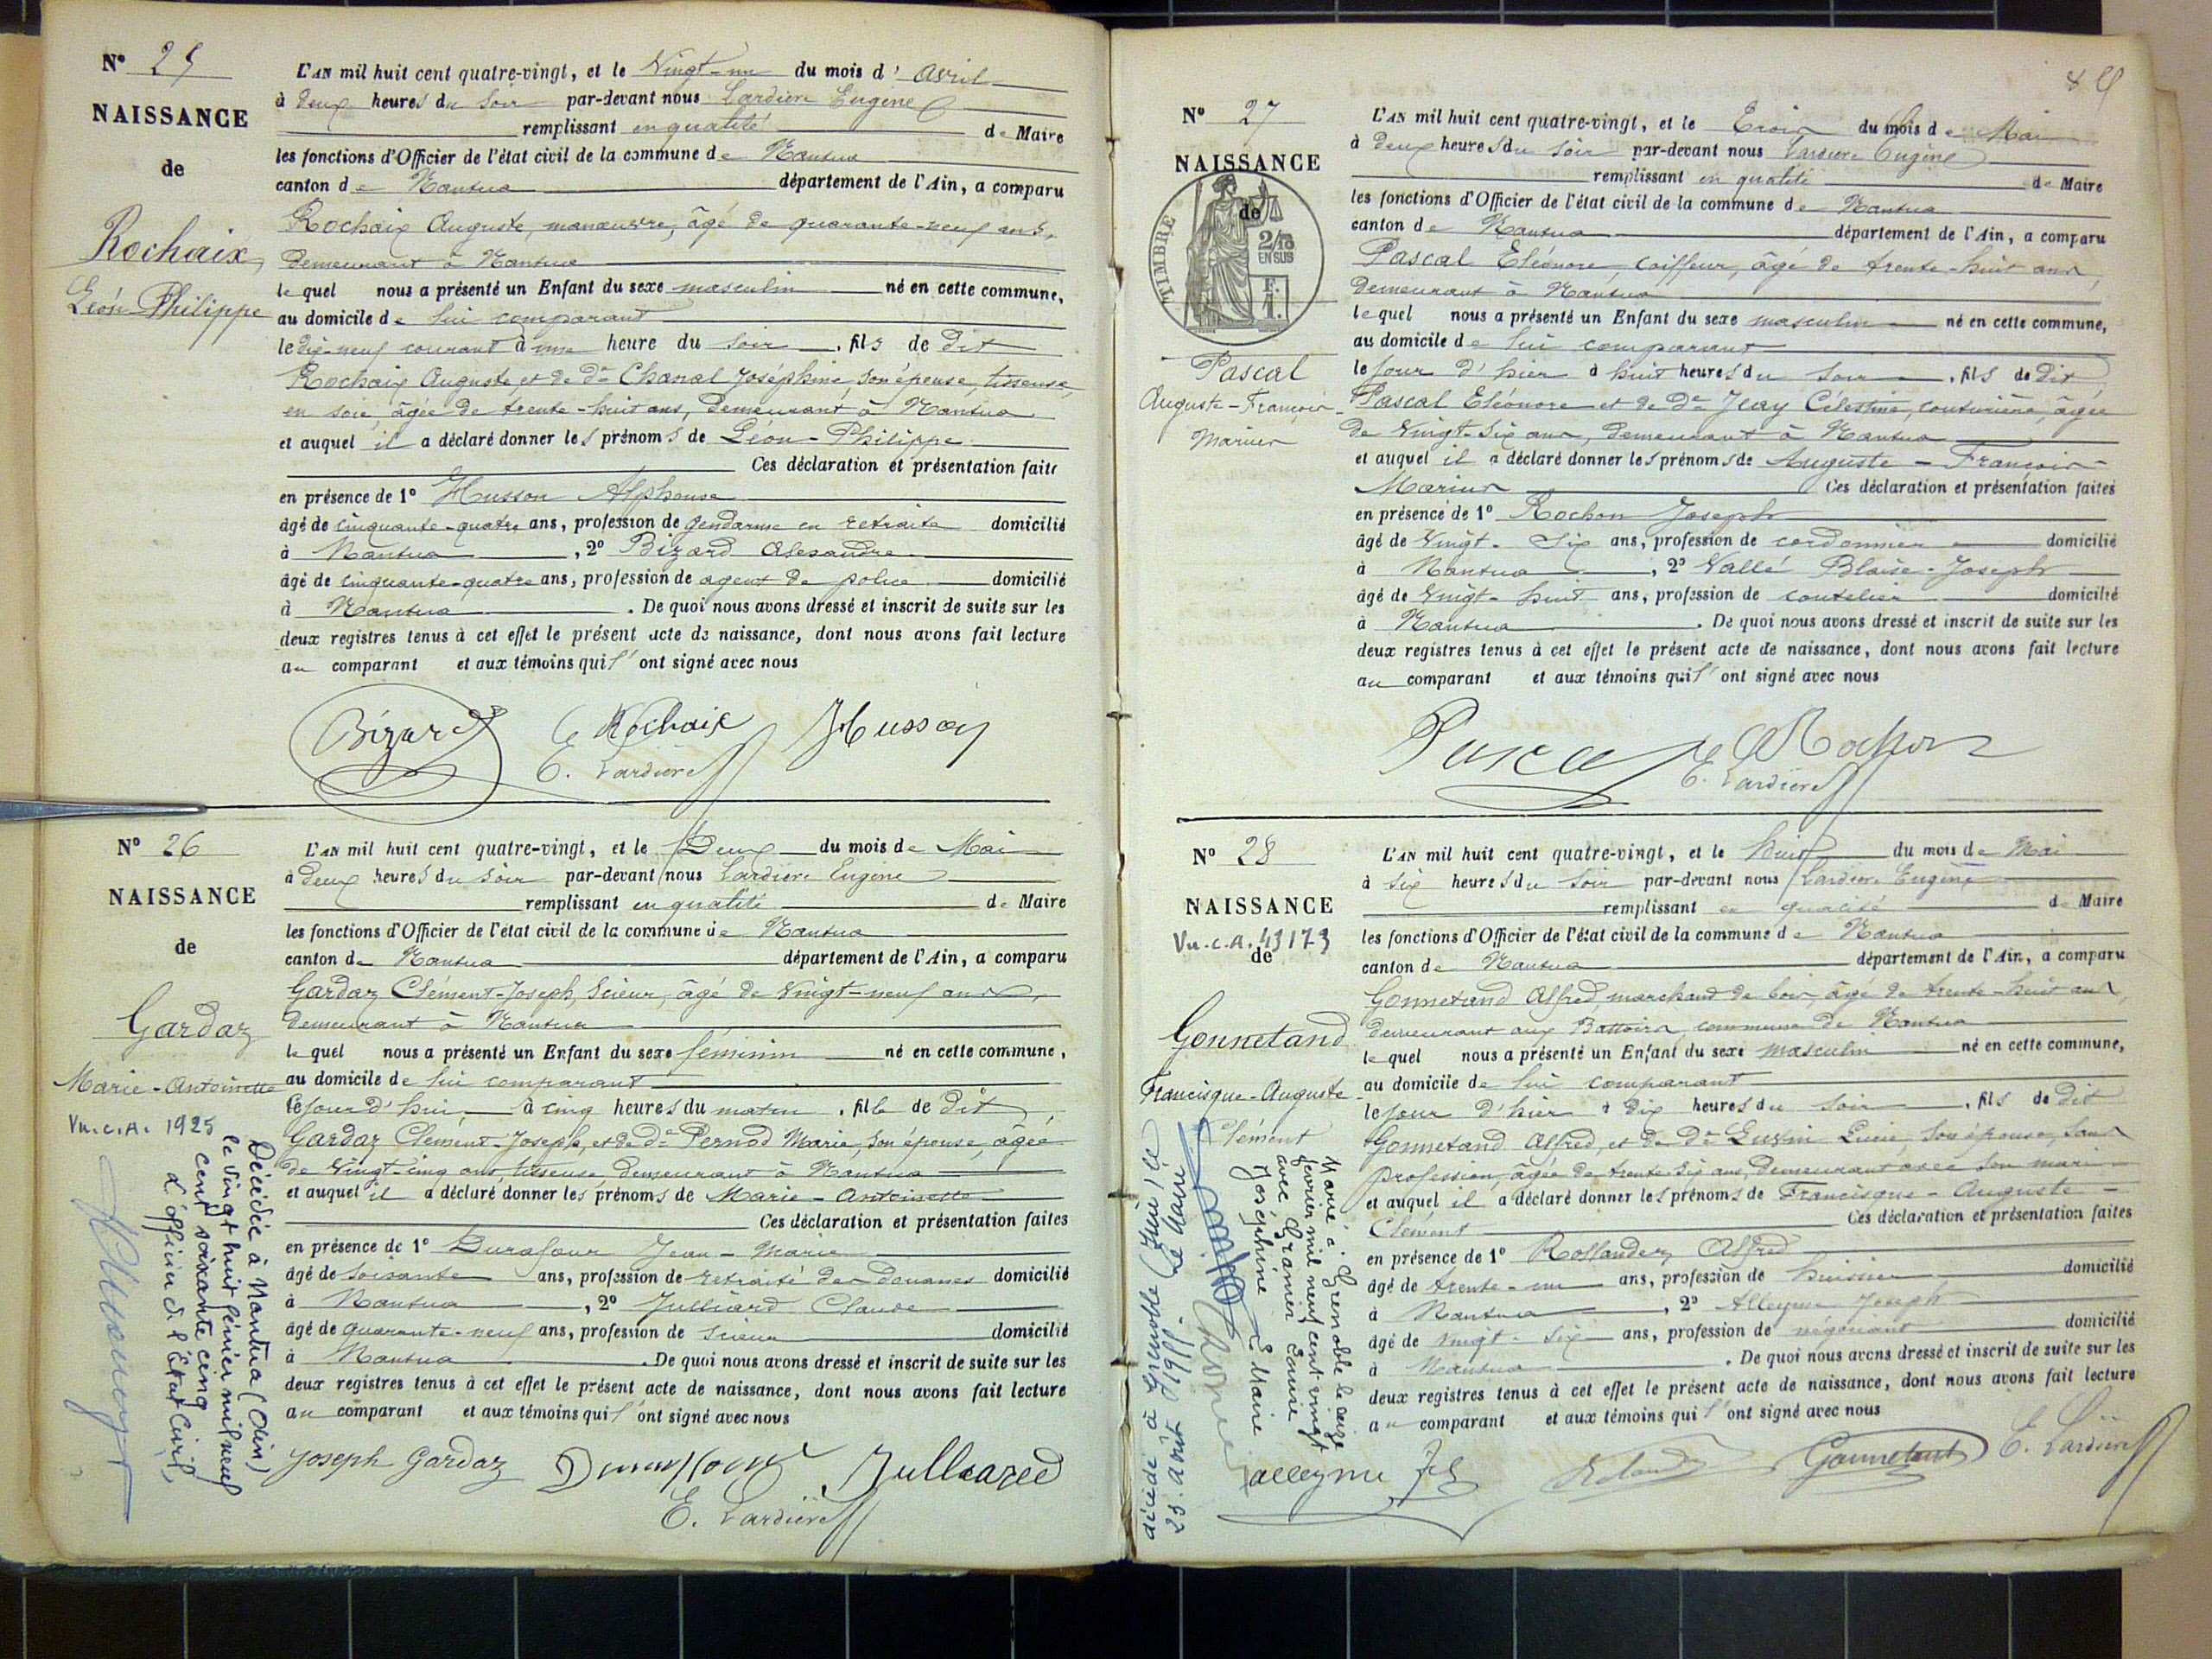 N° 25
NAISSANCE
de
Rochaix
Léon-Philippe
L'AN mil huit cent quatre-vingt, et le Vingt-un du mois d'Avril
à deux heures du soir par-devant nous Lardière Eugène
remplissant en qualité de Maire
les fonctions d'Officier de l'état civil de la commune de Nantua
canton de Nantua département de l'Ain, a comparu
Rochaix Auguste, manœuvre, âgé de quarante-neuf ans,
demeurant à Nantua
lequel nous a présenté un Enfant du sexe masculin né en cette commune,
au domicile de lui comparant
le dix-neuf courant à une heure du soir, fils de dit
Rochaix Auguste et de De Chanal Joséphine, son épouse, tisseuse
en soie, âgée de trente-huit ans, demeurant à Nantua
et auquel il a déclaré donner les prénoms de Léon-Philippe
Ces déclaration et présentation faites
en présence de 1° Husson Alphonse
âgé de cinquante-quatre ans, profession de gendarme en retraite domicilié
à Nantua, 2° Bizard Alexandre
âgé de cinquante-quatre ans, profession de agent de police domicilié
à Nantua. De quoi nous avons dressé et inscrit de suite sur les
deux registres tenus à cet effet le présent acte de naissance, dont nous avons fait lecture
au comparant et aux témoins qui l'ont signé avec nous
Bizard Rochaix Husson
E. Lardière
N° 26
NAISSANCE
de
Gardaz
Marie-Antoinette
Vu.c.A. 1925
Décédée à Nantua (Ain)
le vingt huit février mil neuf
cent soixante cinq
L'officier de l'Etat Civil,
L'AN mil huit cent quatre-vingt, et le Deux du mois de Mai
à deux heures du soir par-devant nous Lardière Eugène
remplissant en qualité de Maire
les fonctions d'Officier de l'état civil de la commune de Nantua
canton de Nantua département de l'Ain, a comparu
Gardaz Clément-Joseph, scieur, âgé de Vingt-neuf ans,
demeurant à Nantua
lequel nous a présenté un Enfant du sexe féminin né en cette commune,
au domicile de lui comparant
le jour d'hui à cinq heures du matin, fille de dit
Gardaz Clément-Joseph, et de De Pernod Marie, son épouse, âgée
de Vingt-cinq ans, tisseuse, demeurant à Nantua
et auquel il a déclaré donner les prénoms de Marie-Antoinette
Ces déclaration et présentation faites
en présence de 1° Durafour Jean-Marie
âgé de soixante ans, profession de retraité des douanes domicilié
à Nantua, 2° Julliard Claude
âgé de quarante-neuf ans, profession de scieur domicilié
à Nantua. De quoi nous avons dressé et inscrit de suite sur les
deux registres tenus à cet effet le présent acte de naissance, dont nous avons fait lecture
au comparant et aux témoins qui l'ont signé avec nous
Joseph Gardaz Duraffour Julliard
E. Lardière
N° 27
NAISSANCE
de
TIMBRE
2/10
EN SUS
F.
1.
Pascal
Auguste-François-
Marius
L'AN mil huit cent quatre-vingt, et le Trois du mois de Mai
à deux heures du soir par-devant nous Lardière Eugène
remplissant en qualité de Maire
les fonctions d'Officier de l'état civil de la commune de Nantua
canton de Nantua département de l'Ain, a comparu
Pascal Eléonore, coiffeur, âgé de trente-huit ans,
demeurant à Nantua
lequel nous a présenté un Enfant du sexe masculin né en cette commune,
au domicile de lui comparant
le jour d'hier à huit heures du soir, fils de dit
Pascal Eléonore et de De Jeay Célestine, couturière, âgée
de Vingt-six ans, demeurant à Nantua
et auquel il a déclaré donner les prénoms de Auguste-François-
Marius Ces déclaration et présentation faites
en présence de 1° Rochon Joseph
âgé de Vingt-Six ans, profession de cordonnier domicilié
à Nantua, 2° Vallé Blaise-Joseph
âgé de Vingt-huit ans, profession de coutelier domicilié
à Nantua. De quoi nous avons dressé et inscrit de suite sur les
deux registres tenus à cet effet le présent acte de naissance, dont nous avons fait lecture
au comparant et aux témoins qui l'ont signé avec nous
Pascal Rochon
E. Lardière
N° 28
NAISSANCE
Vu.c.A. 43173
de
Gonnetand
Francisque-Auguste-
Clément
Marié à Grenoble le seize
février mil neuf cent vingt
avec Granier Louise
Joséphine Le Maire
décédé à Grenoble (Isère) le
23 août 1955. Le Maire
L'AN mil huit cent quatre-vingt, et le huit du mois de Mai
à six heures du soir par-devant nous Lardière Eugène
remplissant en qualité de Maire
les fonctions d'Officier de l'état civil de la commune de Nantua
canton de Nantua département de l'Ain, a comparu
Gonnetand Alfred, marchand de bois, âgé de trente-huit ans,
demeurant aux Battoirs, commune de Nantua
lequel nous a présenté un Enfant du sexe masculin né en cette commune,
au domicile de lui comparant
le jour d'hier à dix heures du soir, fils de dit
Gonnetand Alfred, et de De Luzin Lucie, son épouse, sans
profession, âgée de trente-six ans, demeurant avec son mari
et auquel il a déclaré donner les prénoms de Francisque-Auguste-
Clément Ces déclaration et présentation faites
en présence de 1° Rollandez Alfred
âgé de trente-un ans, profession de huissier domicilié
à Nantua, 2° Alleyme Joseph
âgé de Vingt-six ans, profession de négociant domicilié
à Nantua. De quoi nous avons dressé et inscrit de suite sur les
deux registres tenus à cet effet le présent acte de naissance, dont nous avons fait lecture
au comparant et aux témoins qui l'ont signé avec nous
alleyme fils Gonnetand E. Lardière